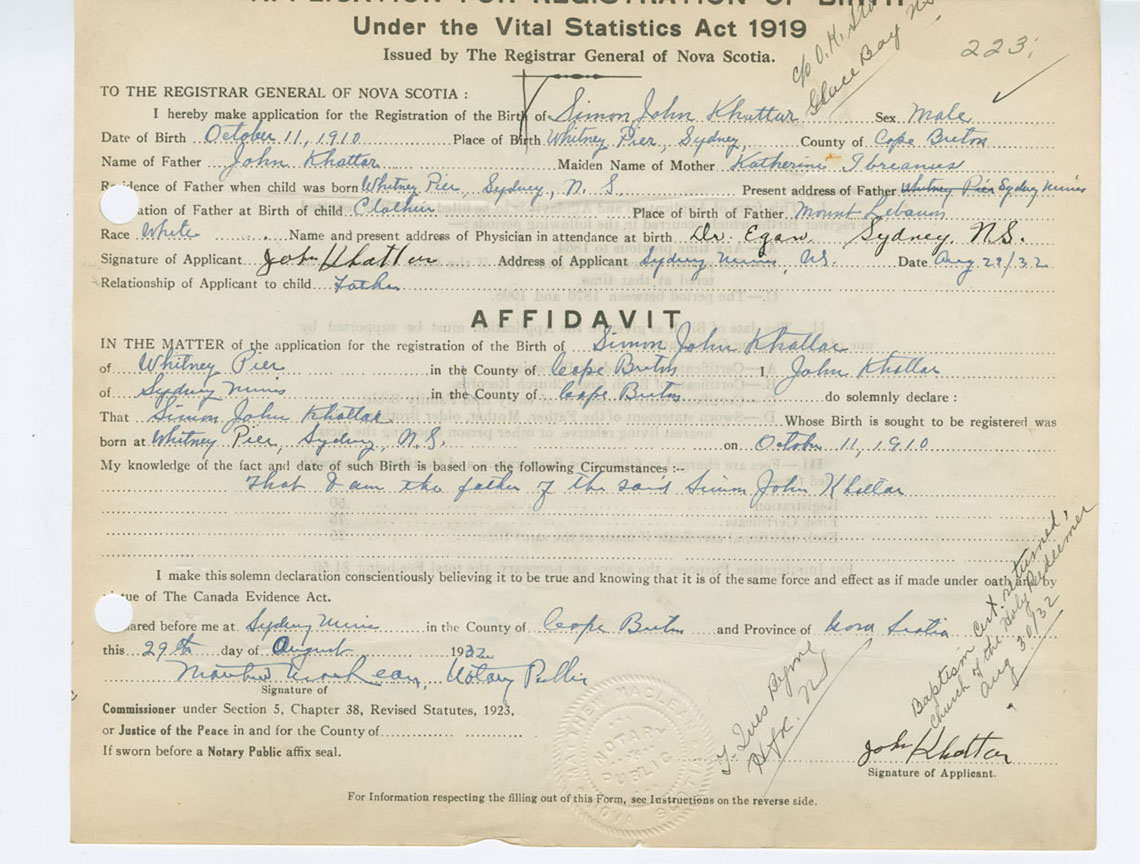 APPLICATION FOR REGISTRATION OF BIRTH
Under the Vital Statistics Act 1919
Issued by The Registrar General of Nova Scotia.
c/o O. K.
Glace Bay
223
TO THE REGISTRAR GENERAL OF NOVA SCOTIA :
I hereby make application for the Registration of the Birth of Simon John Khattar Sex Male
Date of Birth October 11, 1910 Place of Birth Whitney Pier, Sydney, County of Cape Breton
Name of Father John Khattar Maiden Name of Mother Katherine
Residence of Father when child was born Whitney Pier, Sydney, N. S. Present address of Father Whitney Pier Sydney Mines
ation of Father at Birth of child Clothier Place of birth of Father Mount Lebanon
Race White Name and present address of Physician in attendance at birth Dr. Egan Sydney N.S.
Signature of Applicant John Khattar Address of Applicant Sydney Mines, N.S. Date Aug 29/32
Relationship of Applicant to child Father
AFFIDAVIT
IN THE MATTER of the application for the registration of the Birth of Simon John Khattar
of Whitney Pier in the County of Cape Breton I, John Khattar
of Sydney Mines in the County of Cape Breton do solemnly declare :
That Simon John Khattar Whose Birth is sought to be registered was
born at Whitney Pier, Sydney, N.S. on October 11, 1910
My knowledge of the fact and date of such Birth is based on the following Circumstances :--
That I am the father of the said Simon John Khattar
I make this solemn declaration conscientiously believing it to be true and knowing that it is of the same force and effect as if made under oath and by
tue of The Canada Evidence Act.
ared before me at Sydney Mines in the County of Cape Breton and Province of Nova Scotia
this 29th day of August 1932
Notary Public
Signature of
Commissioner under Section 5, Chapter 38, Revised Statutes, 1923,
or Justice of the Peace in and for the County of
If sworn before a Notary Public affix seal.
MATTHEW
NOTARY PUBLIC
NOVA SCOTIA
Byrne
Hfx. NS
Baptism Cert. returned,
Church of the Holy Redeemer
Aug 30/32
John Khattar
Signature of Applicant.
For Information respecting the filling out of this Form, see Instructions on the reverse side.